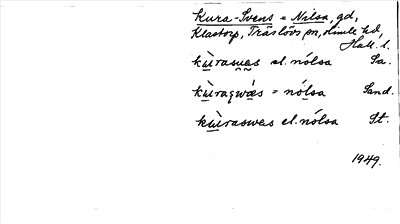 Kura-Svens = Nilsa, gd,
Klastorp, Träslövs sn, Himle hd,
Hall. l.
kùrasụạs el. nólsa Sa.
kùraqwás = nólsa Sand.
kùraswas el. nólsa St.
1949.